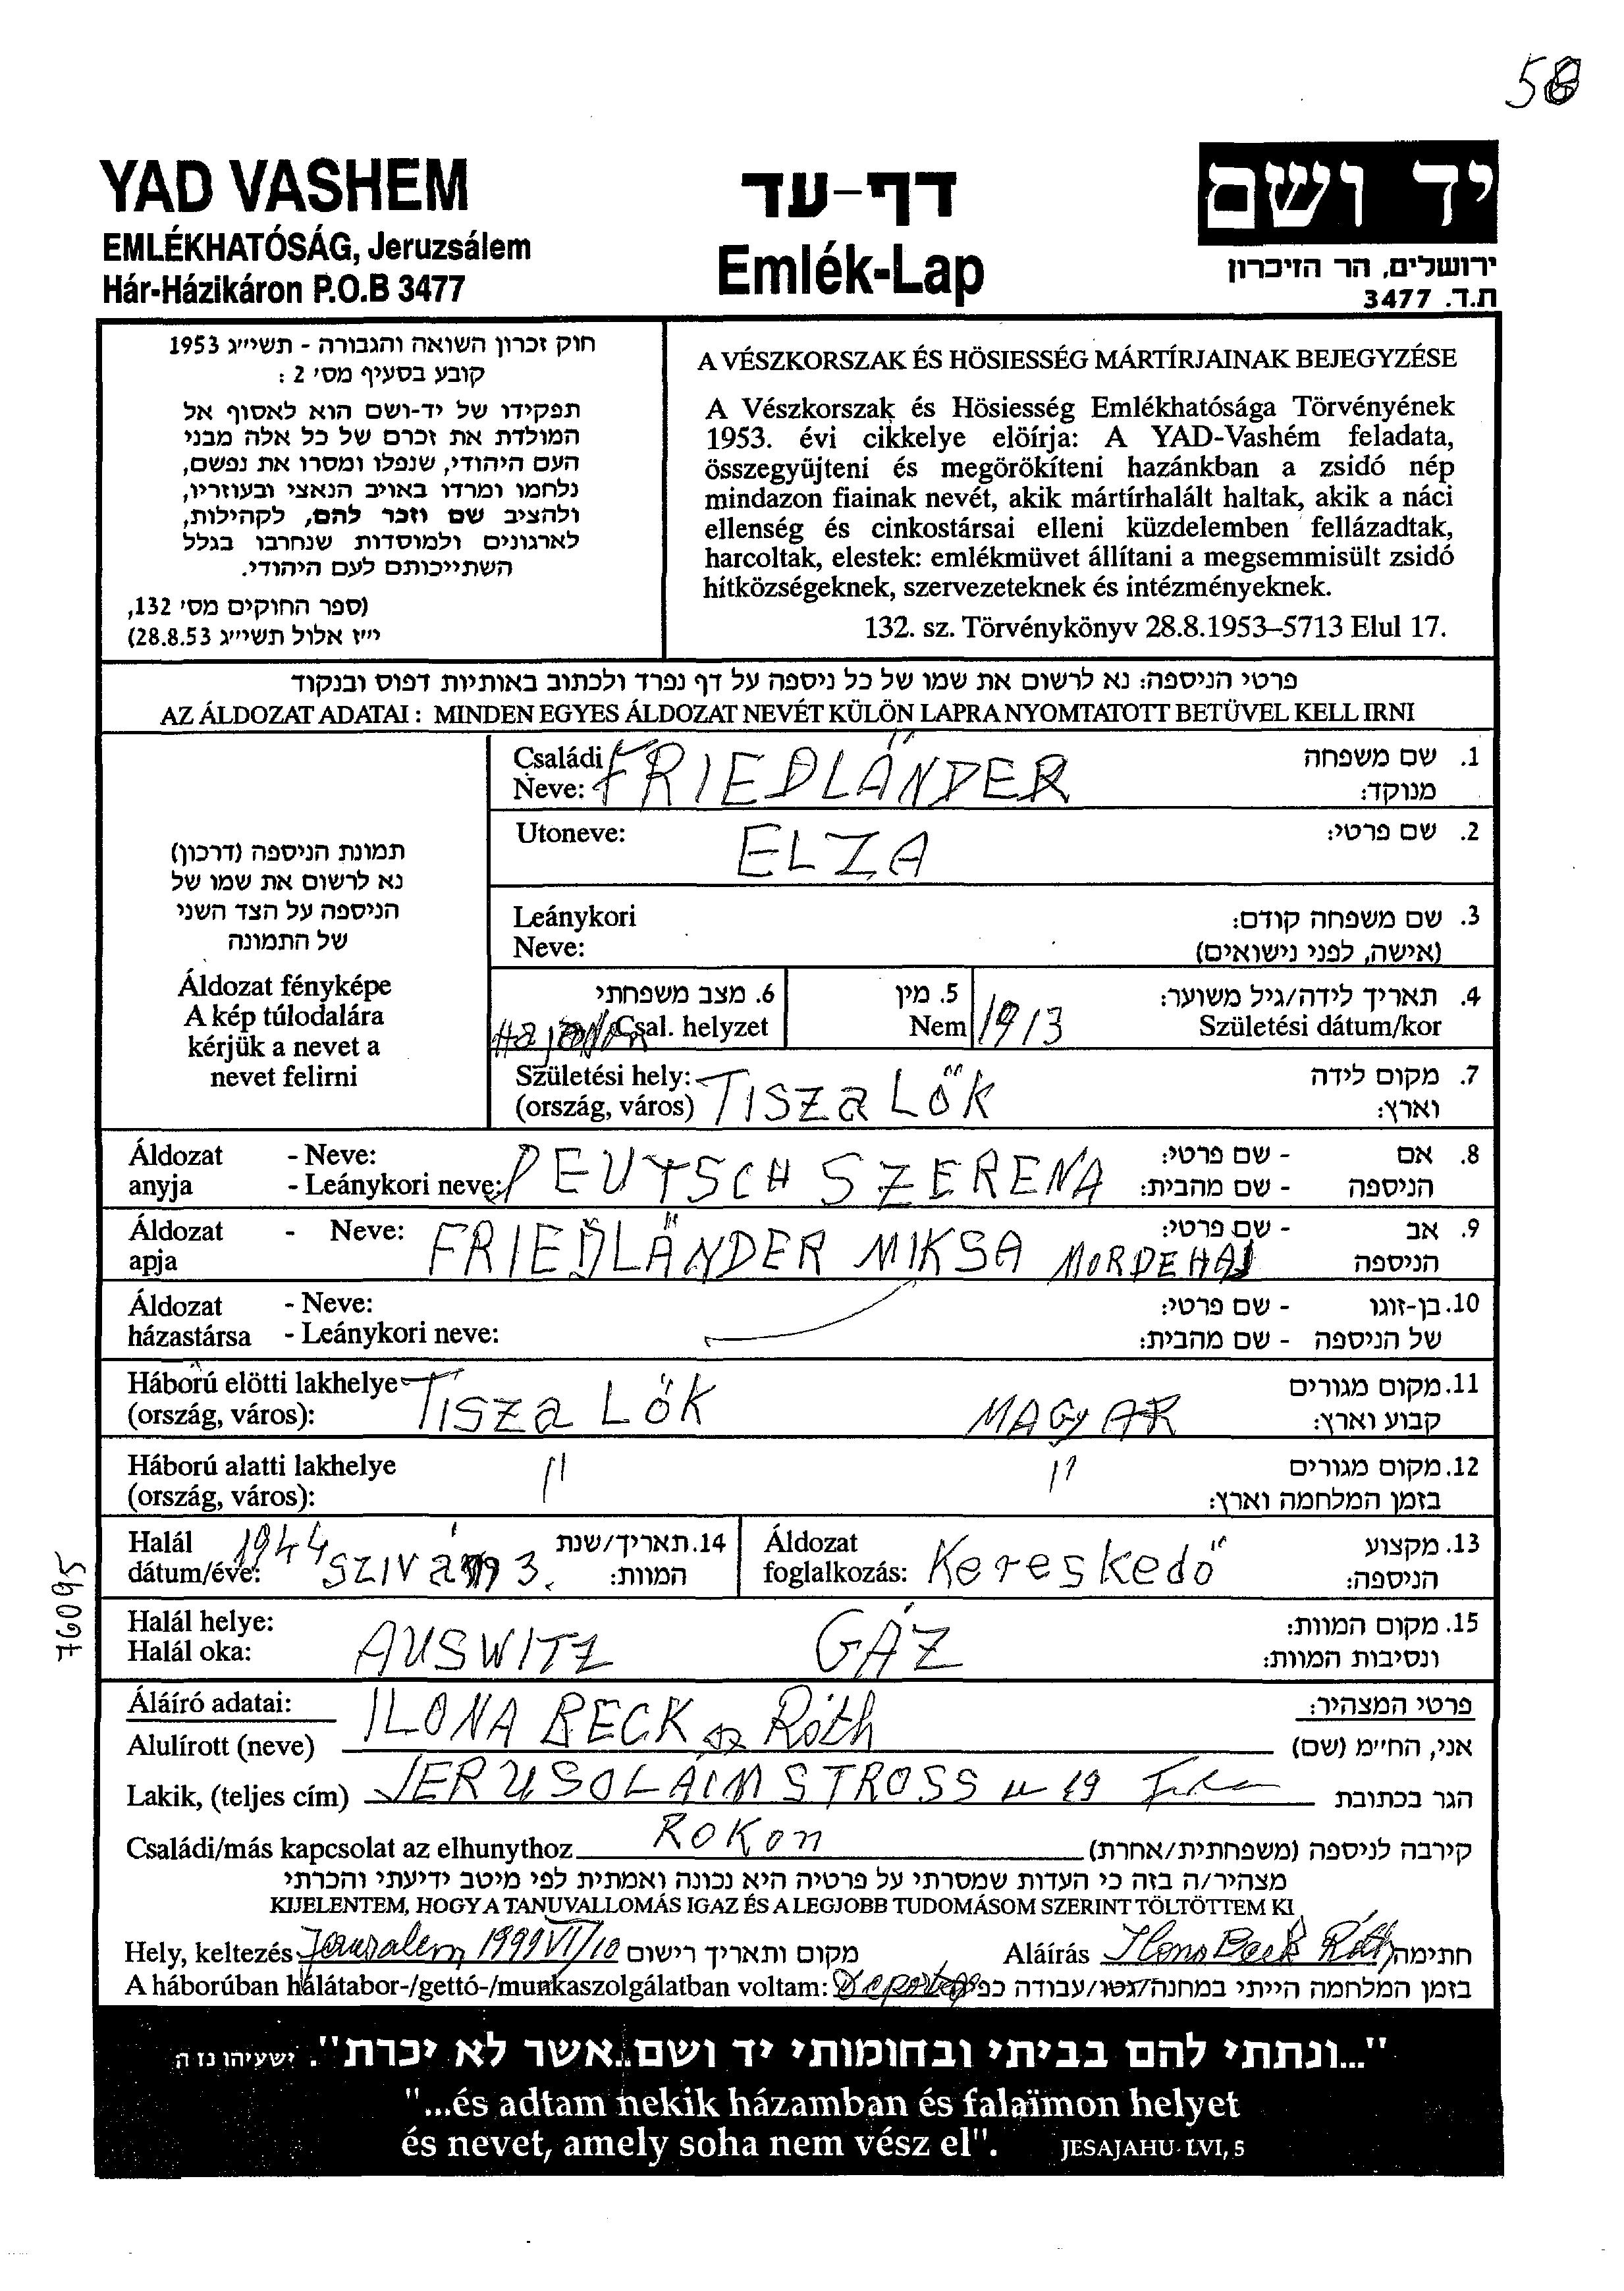 58
YAD VASHEM
EMLÉKHATÓSÁG, Jeruzsálem
Hár-Házikáron P.O.B 3477
דף-עד
Emlék-Lap
יד ושם
ירושלים, הר הזיכרון
ת.ד. 3477
חוק זכרון השואה והגבורה - תשי״ג 1953
קובע בסעיף מס׳ 2 :
תפקידו של יד-ושם הוא לאסוף אל
המולדת את זכרם של כל אלה מבני
העם היהודי, שנפלו ומסרו את נפשם,
נלחמו ומרדו באויב הנאצי ובעוזריו,
ולהציב שם וזכר להם, לקהילות,
לארגונים ולמוסדות שנחרבו בגלל
השתייכותם לעם היהודי.
(ספר החוקים מס׳ 132,
י״ז אלול תשי״ג 28.8.53)
A VÉSZKORSZAK ÉS HÖSIESSÉG MÁRTÍRJAINAK BEJEGYZÉSE
A Vészkorszak és Hösiesség Emlékhatósága Törvényének
1953. évi cikkelye elöírja: A YAD-Vashém feladata,
összegyüjteni és megörökíteni hazánkban a zsidó nép
mindazon fiainak nevét, akik mártírhalált haltak, akik a náci
ellenség és cinkostársai elleni küzdelemben fellázadtak,
harcoltak, elestek: emlékmüvet állítani a megsemmisült zsidó
hitközségeknek, szervezeteknek és intézményeknek.
132. sz. Törvénykönyv 28.8.1953–5713 Elul 17.
פרטי הניספה: נא לרשום את שמו של כל ניספה על דף נפרד ולכתוב באותיות דפוס ובנקוד
AZ ÁLDOZAT ADATAI : MINDEN EGYES ÁLDOZAT NEVÉT KÜLÖN LAPRA NYOMTATOTT BETÜVEL KELL IRNI
תמונת הניספה (דרכון)
נא לרשום את שמו של
הניספה על הצד השני
של התמונה
Áldozat fényképe
A kép túlodalára
kérjük a nevet a
nevet felirni
Családi Neve: FRIEDLÄNDER
1. שם משפחה
מנוקד:
Utoneve: ELZA
2. שם פרטי:
Leánykori
Neve:
3. שם משפחה קודם:
(אישה, לפני נישואים)
6. מצב משפחתי
Hajadon Csal. helyzet
5. מין
Nem
1913
4. תאריך לידה/גיל משוער:
Születési dátum/kor
Születési hely:
(ország, város) TISZA LŐK
7. מקום לידה
וארץ:
Áldozat - Neve:
anyja - Leánykori neve: DEUTSCH SZERENA
8. אם - שם פרטי:
הניספה - שם מהבית:
Áldozat - Neve:
apja
FRIEDLÄNDER MIKSA MORDEHAJ
9. אב - שם פרטי:
הניספה
Áldozat - Neve:
házastársa - Leánykori neve:
10. בן-זוגו - שם פרטי:
של הניספה - שם מהבית:
Háború elötti lakhelye
(ország, város): TISZA LÓK MAGYAR
11. מקום מגורים
קבוע וארץ:
Háború alatti lakhelye
(ország, város): " "
12. מקום מגורים
בזמן המלחמה וארץ:
Halál
dátum/éve: 1944 SZIVÁN 3.
14. תאריך/שנת
המוות:
Áldozat
foglalkozás: Kereskedő
13. מקצוע
הניספה:
Halál helye:
Halál oka: AUSWITZ GÁZ
15. מקום המוות:
ונסיבות המוות:
76095
Áláíró adatai:
פרטי המצהיר:
Alulírott (neve) ILONA BECK Róth
אני, הח״מ (שם)
Lakik, (teljes cím) JERUSOLÁIM STROSS u 19
הגר בכתובת
Családi/más kapcsolat az elhunythoz ROKON
קירבה לניספה (משפחתית/אחרת)
מצהיר/ה בזה כי העדות שמסרתי על פרטיה היא נכונה ואמתית לפי מיטב ידיעתי והכרתי
KIJELENTEM, HOGY A TANUVALLOMÁS IGAZ ÉS A LEGJOBB TUDOMÁSOM SZERINT TÖLTÖTTEM KI
Hely, keltezés Jerusalem 1999 VI/10 מקום ותאריך רישום
Aláírás Ilona Beck Róth חתימה
A háborúban halátabor-/gettó-/munkaszolgálatban voltam:
בזמן המלחמה הייתי במחנה/גטו/עבודה כפ
"...ונתתי להם בביתי ובחומותי יד ושם..אשר לא יכרת". ישעיהו נז ה
"...és adtam nekik házamban és falaïmon helyet
és nevet, amely soha nem vész el". JESAJAHU LVI, 5